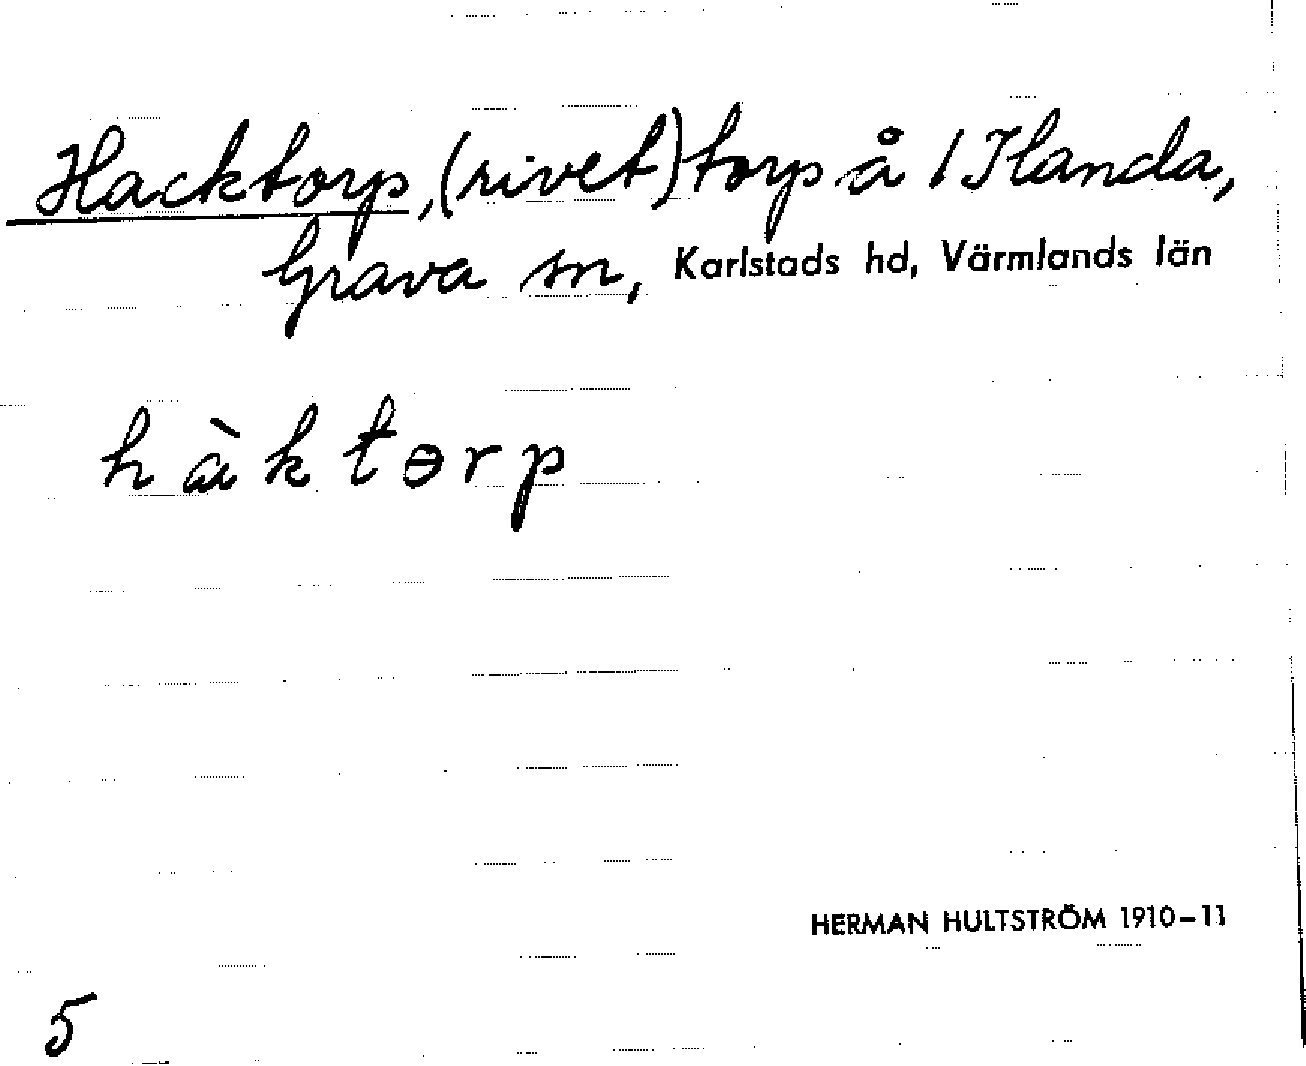 Hacktorp, (rivet) torp å 1 Ilanda,
Grava sn, Karlstads hd, Värmlands län
hàktɵrp
HERMAN HULTSTRÖM 1910-11
5